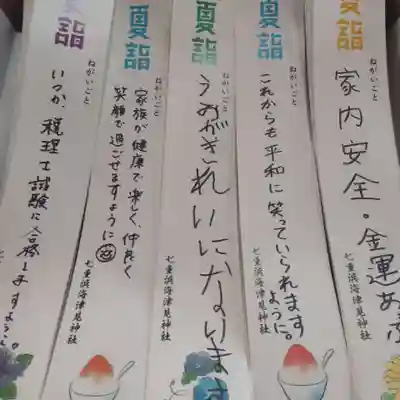 夏詣
ねがいごと
家内安全。金運
七重浜海津見神社
夏詣
ねがいごと
これからも平和に
笑っていられます
ように。
七重浜海津見神社
夏詣
ねがいごと
うみがきれいになります
夏詣
ねがいごと
家族が健康で楽しく、仲良く
笑顔で過ごせますように
七重浜海津見神社
詣
ねがいごと
いつか、税理士試験に合格しますように。
七重浜海津見神社